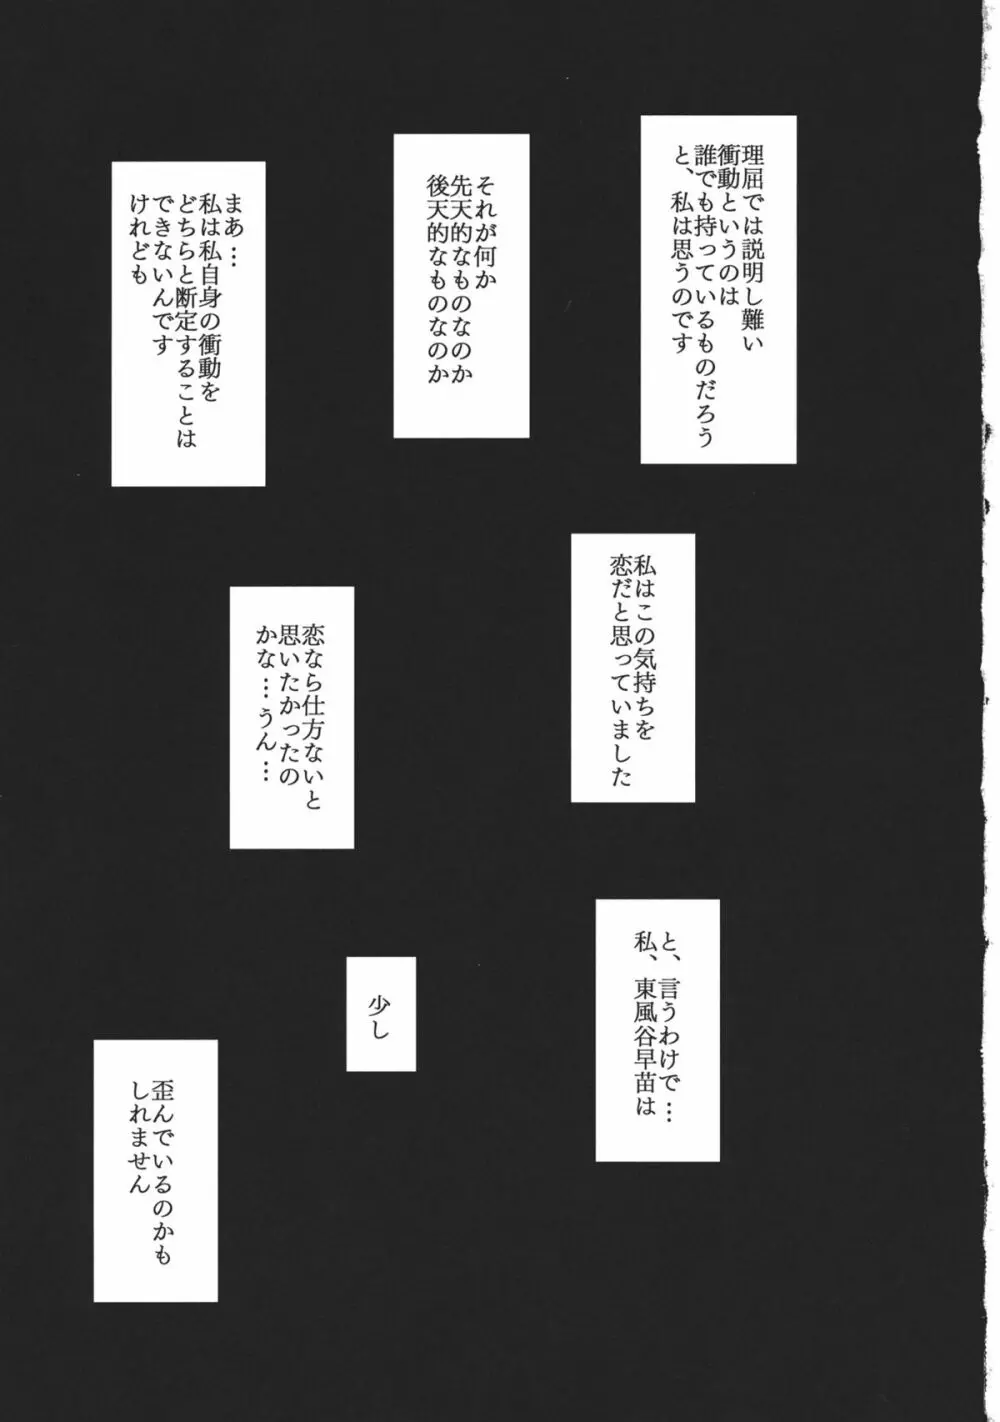 理屈では説明し難い
衝動というのは
誰でも持っているものだろう
と、私は思うのです
それが何か
先天的なものなのか
後天的なものなのか
まあ…
私は私自身の衝動を
どちらと断定することは
できないんです
けれども
私はこの気持ちを
恋だと思っていました
恋なら仕方ないと
思いたかったの
かな…うん…
と、言うわけで…
私、東風谷早苗は
少し
歪んでいるのかも
しれません